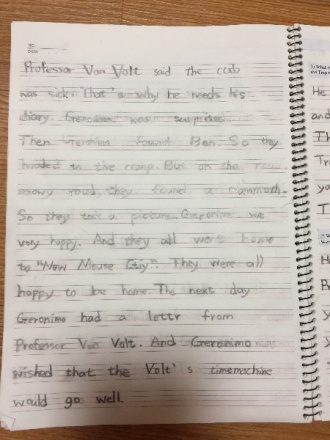 Professor Van Volt said the
was sick. That's why he needs his
diary. Geronimo was
Then Geronimo found Ben. So they
headed to the camp. But on the
snowy road, they found a mammoth.
So they took a picture. Geronimo
very happy. And they all went home
to "New Mouse City". They were all
happy to be home. The next day
Geronimo had a lettr from
Professor Van Volt. And Geronimo
wished that the Volt's timemachine
would go well.
He
and
Th
Tr
yo
T
H